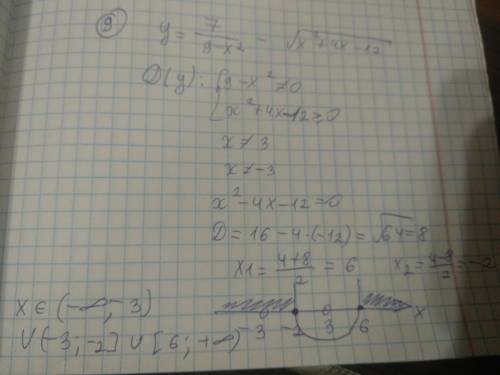 9
y = 7/(9-x²) - √(x²+4x-12)
D(y): { 9-x²≠0
x²+4x-12≥0
x ≠ 3
x ≠ -3
x²-4x-12=0
D = 16-4·(-12) = √64=8
x1 = (4+8)/2 = 6   x2 = (4-8)/2 = -2
-3 -2 3 6 x
x ∈ (-∞; -3)
∪ (-3; -2] ∪ [6; +∞)